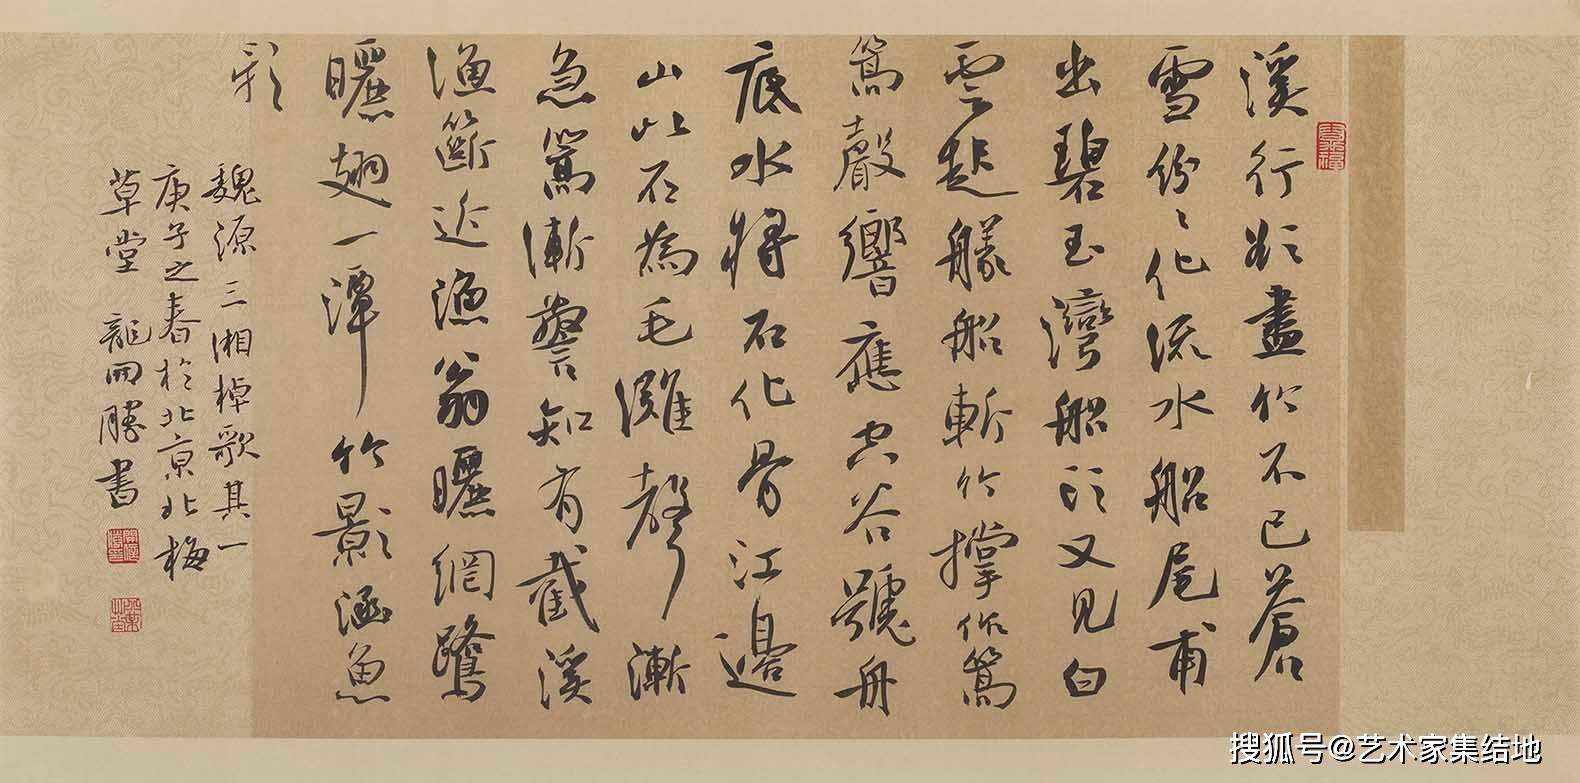 溪行欲盡竹不已蒼
雪紛々化流水船尾甫
出碧玉灣船頭又見白
雲起艤船斬竹撐作篙
篙聲響應空谷號舟
底水將石化骨江邊
山比石為毛灘聲漸
急篙漸警知有截溪
漁籪近漁翁曬網鷺
曬翅一潭竹影涵魚
影
魏源三湘棹歌其一
庚子之春於北京北梅
草堂 龍開勝書
搜狐号@艺术家集结地